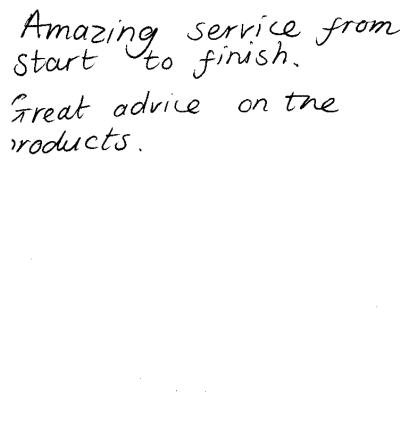 Amazing service from
start to finish.
Great advice on the
products.